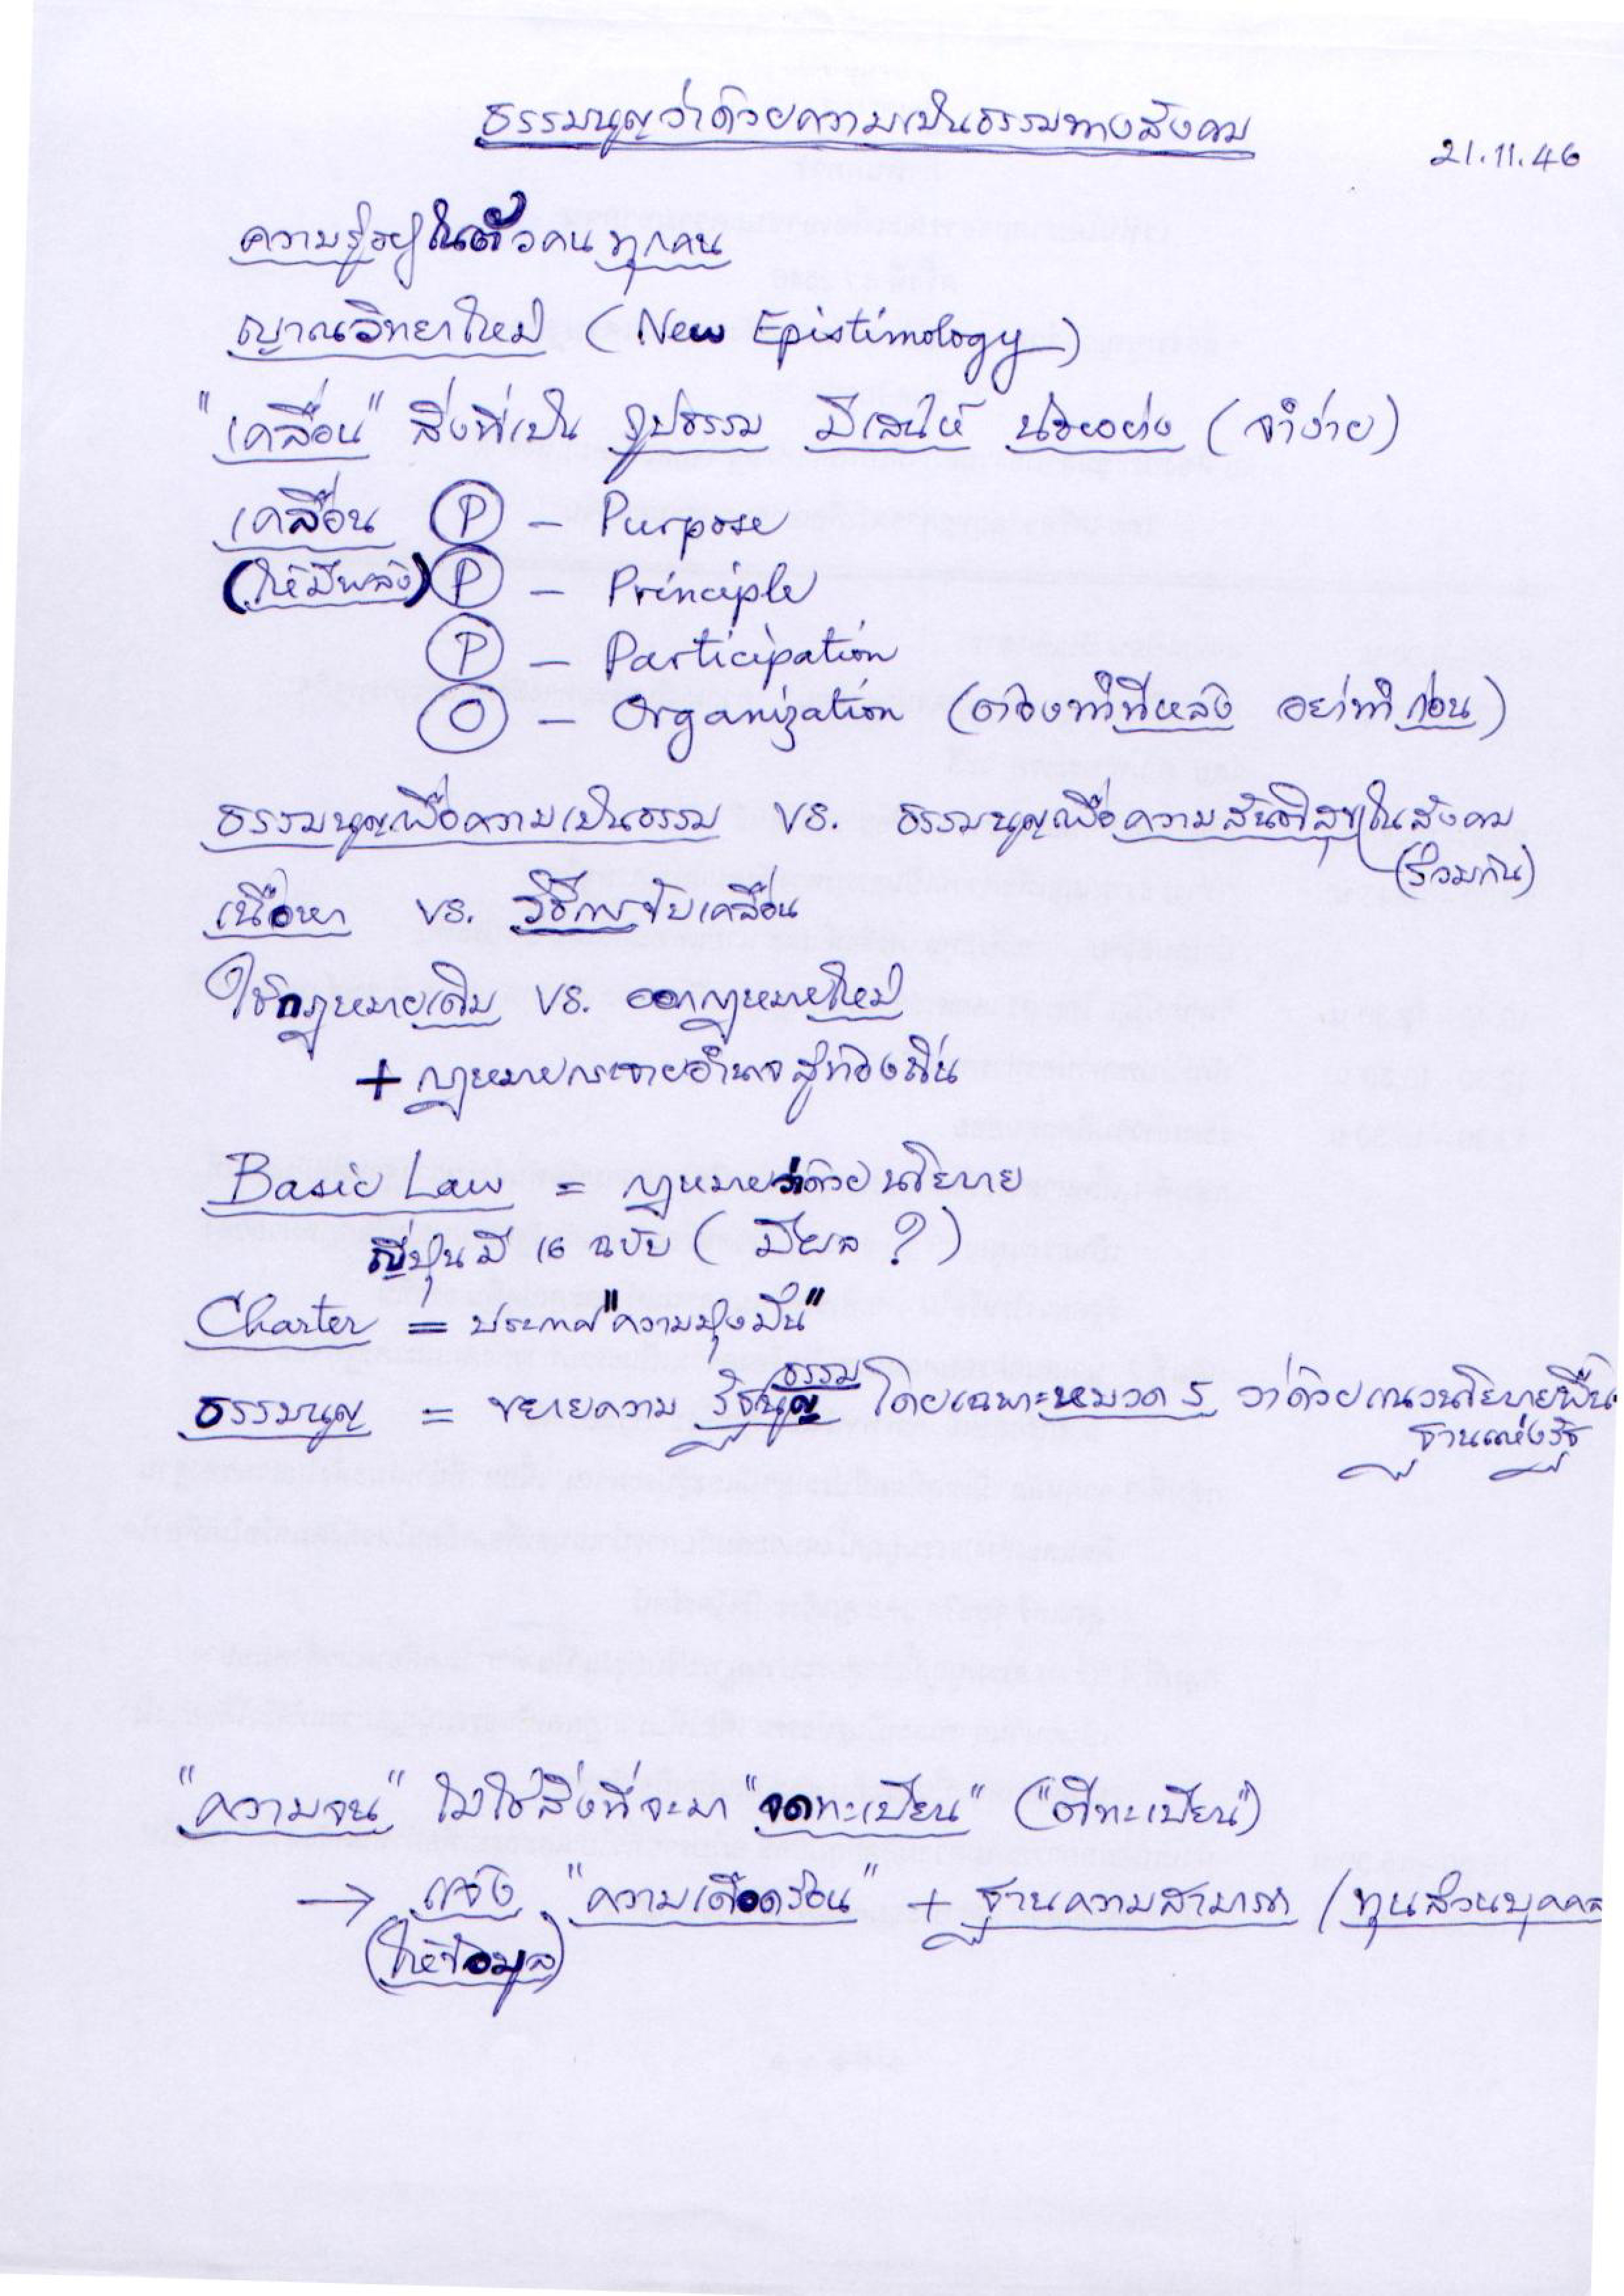 ธรรมนูญว่าด้วยความเป็นธรรมทางสังคม
21.11.46
ความรู้อยู่ในตัวคนทุกคน
ญาณวิทยาใหม่ (New Epistimology)
"เคลื่อน" สิ่งที่เป็น รูปธรรม มีเสน่ห์ น้อยอย่าง (จำง่าย)
เคลื่อน P – Purpose
(ให้มีพลัง) P – Principle
P – Participation
O – Organization (ต้องทำทีหลัง อย่าทำก่อน)
ธรรมนูญเพื่อความเป็นธรรม vs. ธรรมนูญเพื่อความสันติสุขในสังคม
(ร่วมกัน)
เนื้อหา vs. วิธีการขับเคลื่อน
ใช้กฎหมายเดิม vs. ออกกฎหมายใหม่
+ กฎหมายกระจายอำนาจสู่ท้องถิ่น
Basic Law = กฎหมายว่าด้วยนโยบาย
ญี่ปุ่นมี 16 ฉบับ (มีผล ?)
Charter = ประกาศ "ความมุ่งมั่น"
ธรรม
ธรรมนูญ = ขยายความ รัฐนูญ โดยเฉพาะหมวด 5 ว่าด้วยแนวนโยบายพื้น
ฐานแห่งรัฐ
"ความจน" ไม่ใช่สิ่งที่จะมา "จดทะเบียน" ("ตีทะเบียน")
→ แจ้ง "ความเดือดร้อน" + ฐานความสามารถ / ทุนส่วนบุคคล
(ให้ข้อมูล)